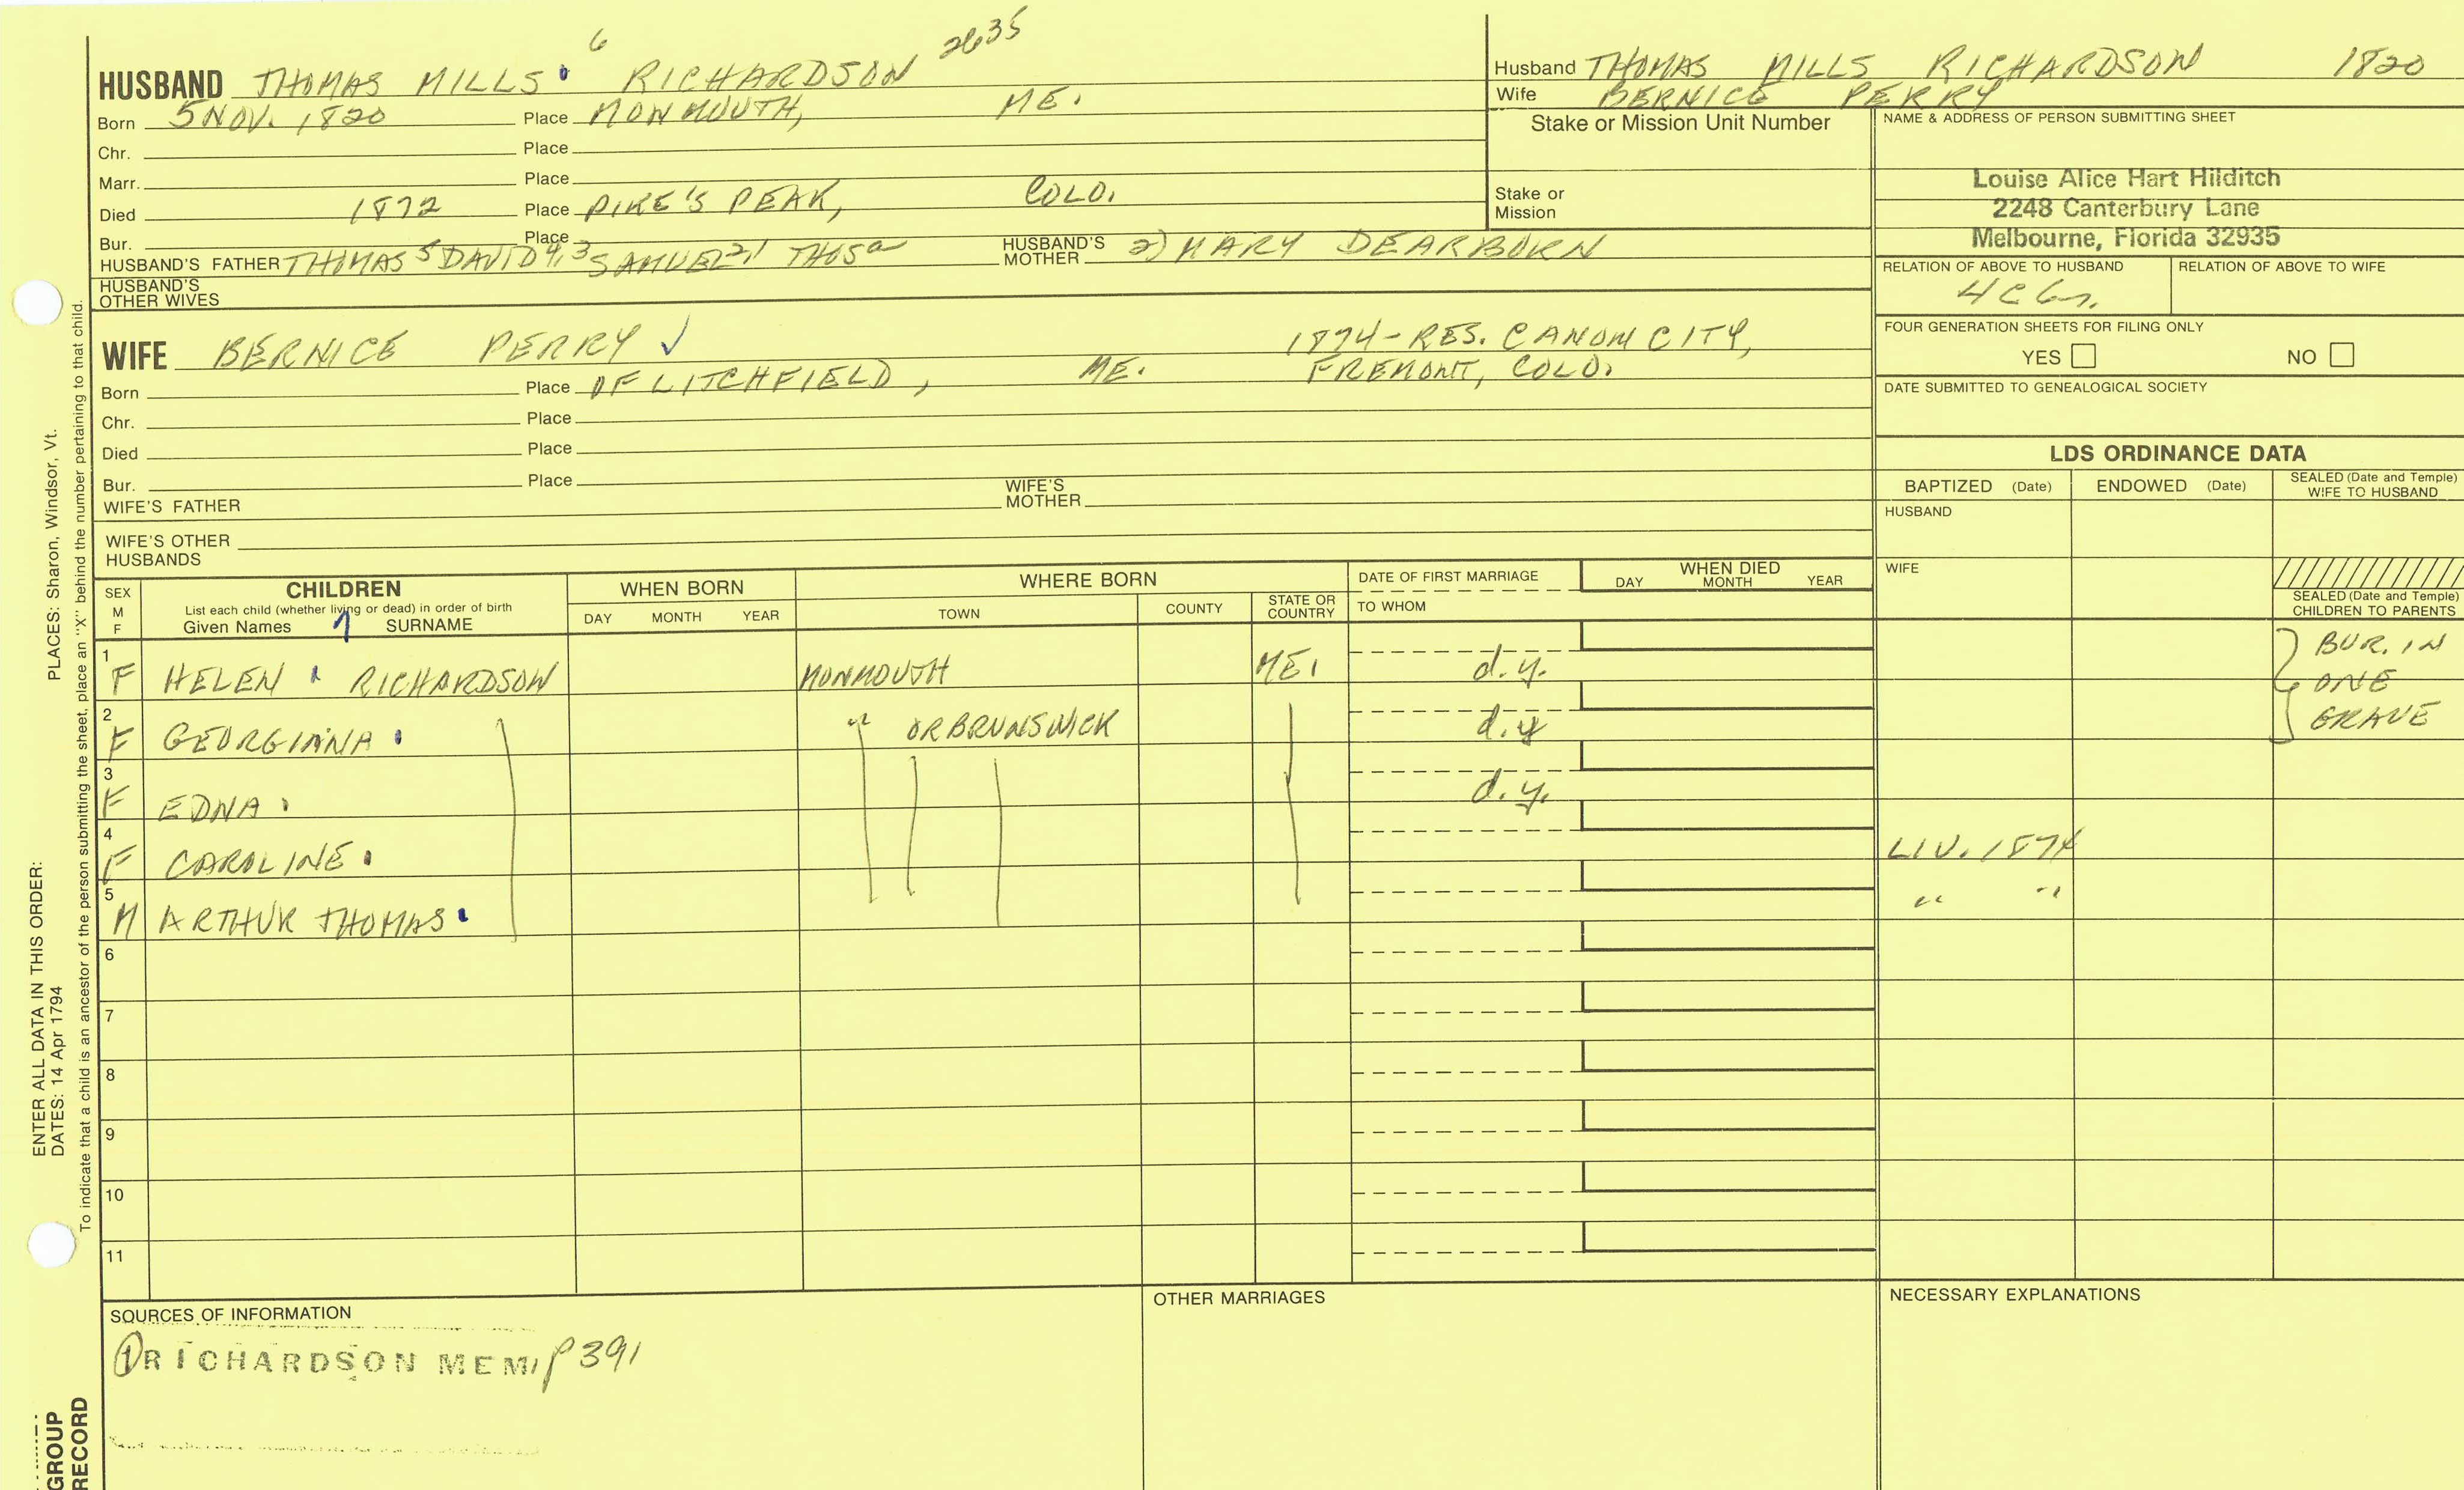 6 2635
HUSBAND THOMAS MILLS RICHARDSON
Born 5 NOV. 1820 Place MONMOUTH, ME.
Chr. Place
Marr. Place
Died 1872 Place PIKE'S PEAK, COLO.
Bur. Place
HUSBAND'S FATHER THOMAS 5 DAVID 4,3 SAMUEL 2,1 THOS HUSBAND'S MOTHER 2) MARY DEARBORN
HUSBAND'S OTHER WIVES
Husband THOMAS MILLS RICHARDSON 1820
Wife BERNICE PERRY
Stake or Mission Unit Number
Stake or Mission
NAME & ADDRESS OF PERSON SUBMITTING SHEET
Louise Alice Hart Hilditch
2248 Canterbury Lane
Melbourne, Florida 32935
RELATION OF ABOVE TO HUSBAND RELATION OF ABOVE TO WIFE
FOUR GENERATION SHEETS FOR FILING ONLY
YES NO
DATE SUBMITTED TO GENEALOGICAL SOCIETY
WIFE BERNICE PERRY ✓ 1874-RES. CANON CITY,
Born Place OF LITCHFIELD, ME. FREMONT, COLO.
Chr. Place
Died Place
Bur. Place
WIFE'S FATHER WIFE'S MOTHER
WIFE'S OTHER HUSBANDS
LDS ORDINANCE DATA
BAPTIZED (Date) ENDOWED (Date) SEALED (Date and Temple) WIFE TO HUSBAND
HUSBAND
WIFE
SEALED (Date and Temple) CHILDREN TO PARENTS
SEX M F CHILDREN WHEN BORN WHERE BORN DATE OF FIRST MARRIAGE WHEN DIED
List each child (whether living or dead) in order of birth
Given Names 7 SURNAME DAY MONTH YEAR TOWN COUNTY STATE OR COUNTRY TO WHOM DAY MONTH YEAR
1 F HELEN RICHARDSON MONMOUTH ME. d.y. } BUR. IN
ONE
GRAVE
2 F GEORGIANA " OR BRUNSWICK d.y
3 F EDNA d.y.
4 F CAROLINE LIV. 1874
5 M ARTHUR THOMAS " "
6
7
8
9
10
11
SOURCES OF INFORMATION OTHER MARRIAGES NECESSARY EXPLANATIONS
① RICHARDSON MEM, p391
ENTER ALL DATA IN THIS ORDER:
DATES: 14 Apr 1794 PLACES: Sharon, Windsor, Vt.
To indicate that a child is an ancestor of the person submitting the sheet, place an "X" behind the number pertaining to that child.
GROUP
RECORD